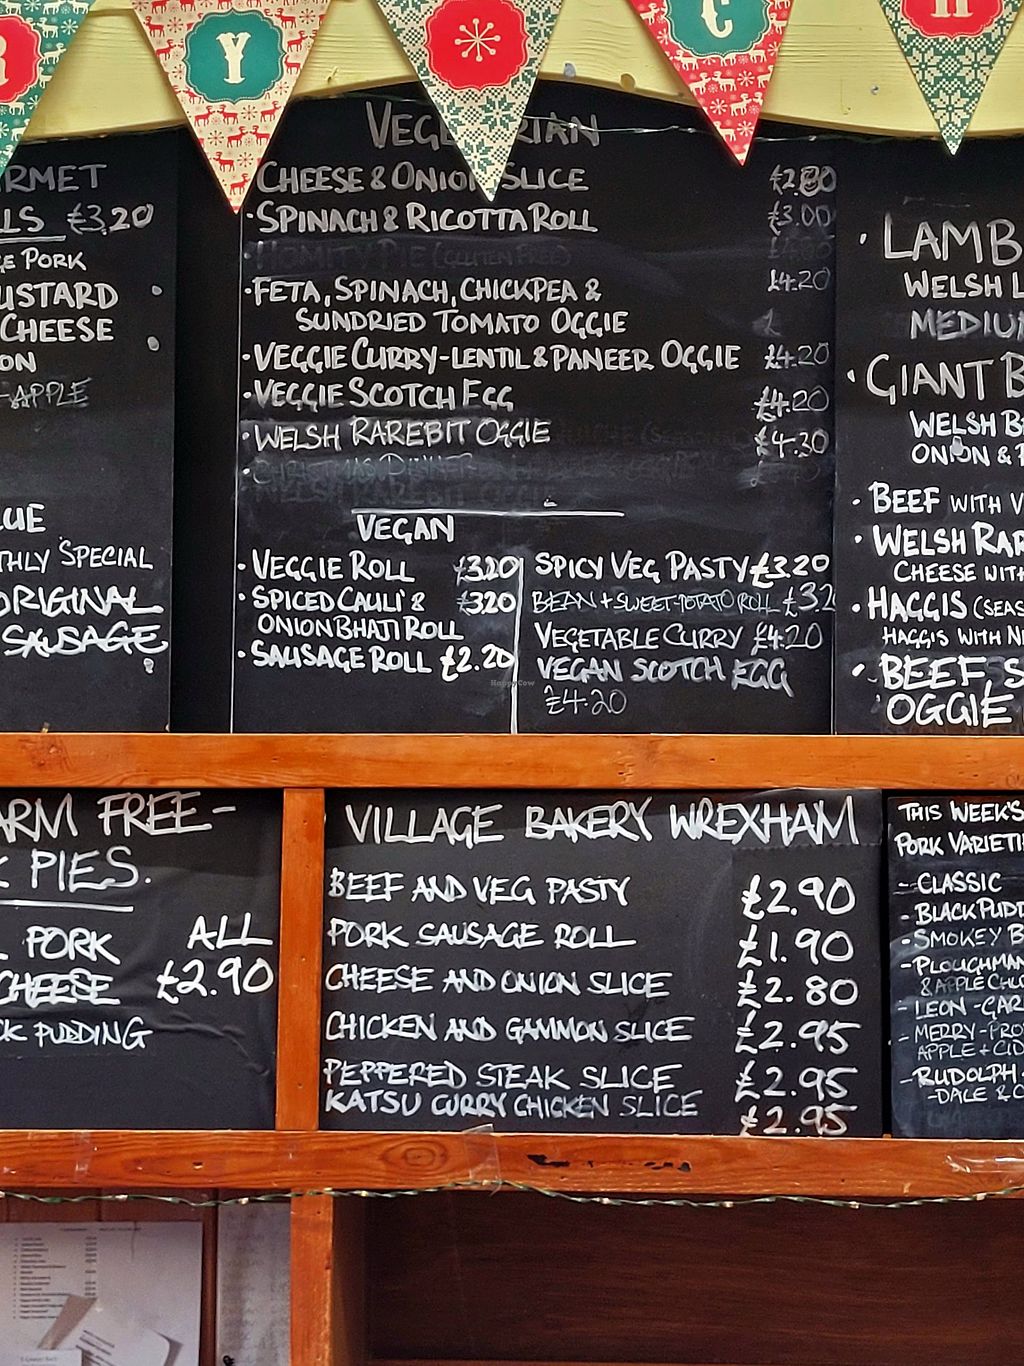 R Y C H
VEGE RIAN
CHEESE & ONION SLICE £2.80
·SPINACH & RICOTTA ROLL £3.00
·HOMITY PIE (GLUTEN FREE)
·FETA, SPINACH, CHICKPEA & £4.20
SUNDRIED TOMATO OGGIE
·VEGGIE CURRY-LENTIL & PANEER OGGIE £4.20
·VEGGIE SCOTCH EGG £4.20
·WELSH RAREBIT OGGIE £4.30
·CHRISTMAS DINNER
VEGAN
·VEGGIE ROLL £3.20
·SPICED CAULI' & £3.20
ONION BHAJI ROLL
·SAUSAGE ROLL £2.20
SPICY VEG PASTY £3.20
BEAN + SWEET-POTATO ROLL £3.2
VEGETABLE CURRY £4.20
VEGAN SCOTCH EGG
£4.20
RMET
LLS £3.20
GE PORK
USTARD
CHEESE
ON
-APPLE
LUE
THLY SPECIAL
ORIGINAL
SAUSAGE
·LAMB
WELSH L
MEDIU
·GIANT B
WELSH B
ONION &
·BEEF WITH V
·WELSH RAR
CHEESE WITH
·HAGGIS (SEAS
HAGGIS WITH N
·BEEF, S
OGGIE
HappyCow
ARM FREE-
PIES.
PORK ALL
CHEESE £2.90
CK PUDDING
VILLAGE BAKERY WREXHAM
BEEF AND VEG PASTY £2.90
PORK SAUSAGE ROLL £1.90
CHEESE AND ONION SLICE £2.80
CHICKEN AND GAMMON SLICE £2.95
PEPPERED STEAK SLICE £2.95
KATSU CURRY CHICKEN SLICE £2.95
THIS WEEK'S
PORK VARIETI
-CLASSIC
-BLACK PUDD
·SMOKEY B
-PLOUGHMAN
& APPLE CHU
-LEON-GAR
-MERRY-PRO
APPLE + CID
-RUDOLPH
-DALE & C